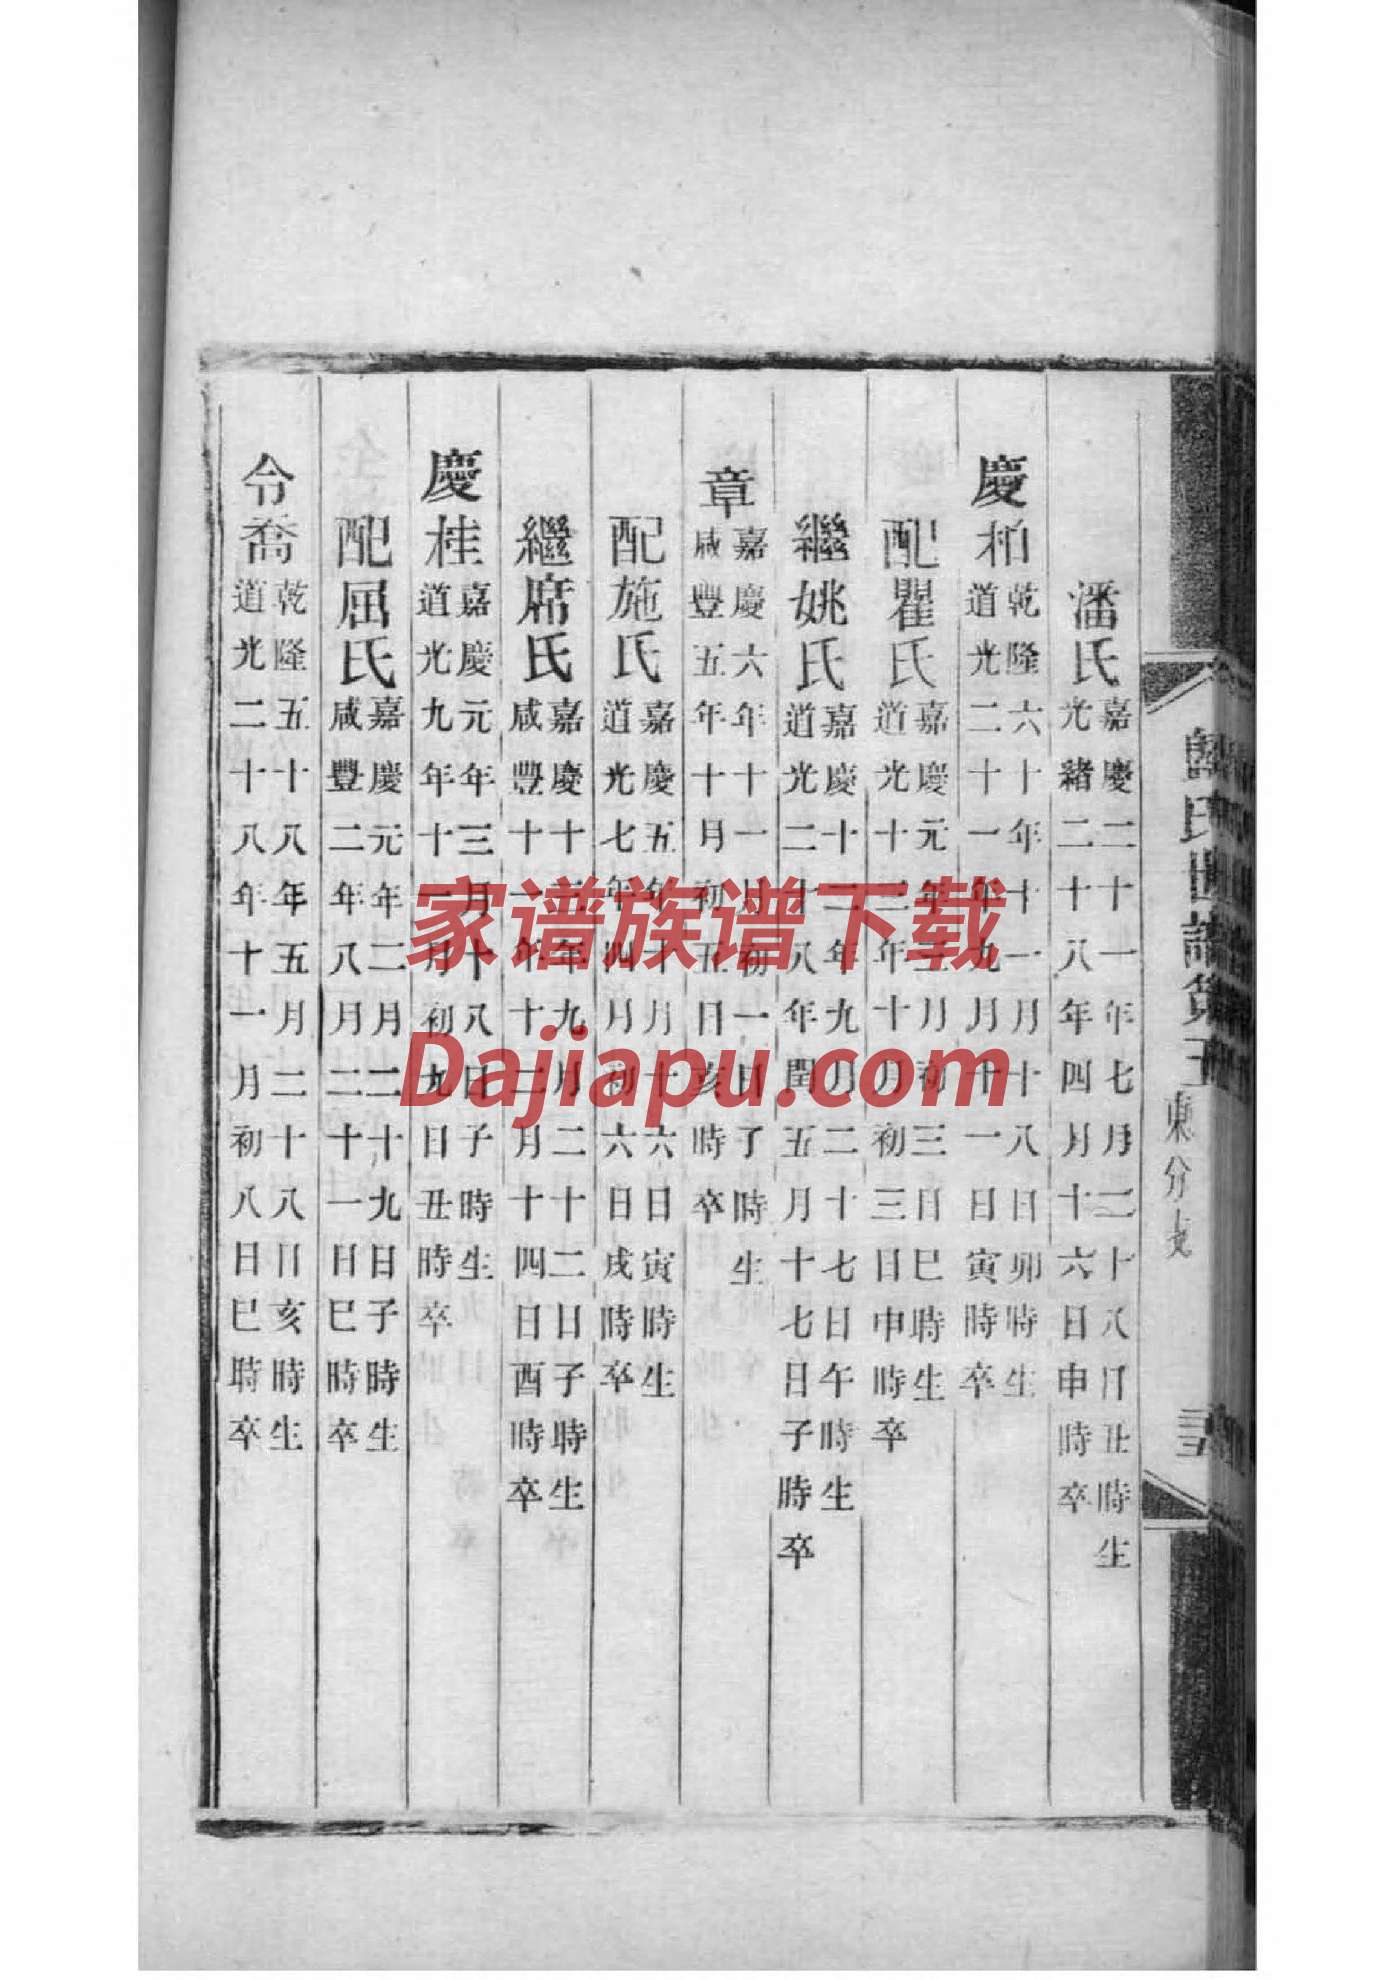 潘氏
嘉慶二十一年七月二十八日丑時生
光緒二十八年四月十六日申時卒
慶柏
乾隆六十年十一月十八日卯時生
道光二十一年九月十一日寅時卒
配瞿氏
嘉慶元年三月初三日巳時生
道光十二年十月初三日申時卒
繼姚氏
嘉慶十二年九月二十七日午時生
道光二十八年閏五月十七日子時卒
章
嘉慶六年十一月初一日子時生
咸豐五年十月初五日亥時卒
配施氏
嘉慶五年十月十六日寅時生
道光七年四月初六日戌時卒
繼席氏
嘉慶十二年九月二十二日子時生
咸豐十一年十二月十四日酉時卒
慶桂
嘉慶元年三月十八日子時生
道光九年十一月初九日丑時卒
配屈氏
嘉慶元年二月二十九日子時生
咸豐二年八月二十一日巳時卒
令喬
乾隆五十八年五月二十八日亥時生
道光二十八年十一月初八日巳時卒
氏世譜
東分支
家谱族谱下载
Dajiapu.com